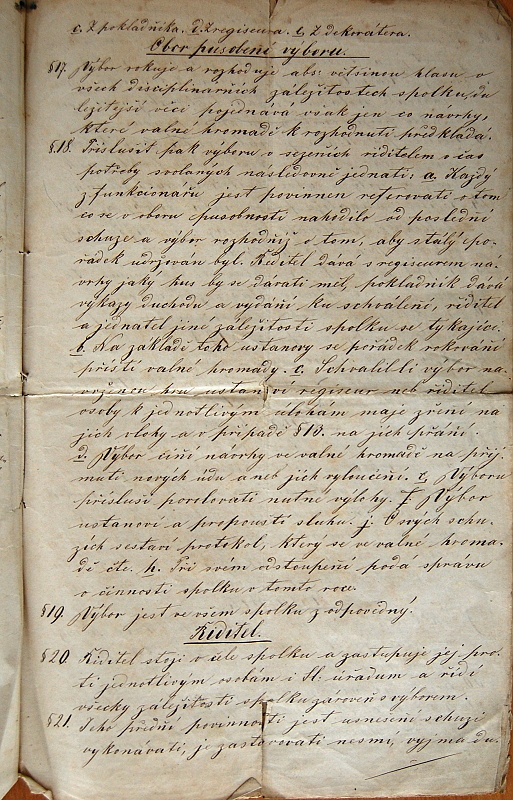 c. Z pokladníka. d. Z regiseura. e. Z dekoratera.
Obor pusobení vyboru.
§17. Výbor rokuje a rozhoduje abs: větsinou hlasu o
všech disciplinarních záležitostech spolku, du
ležitější věci pojednává však jen co návrhy,
které valné hromadě k rozhodnuti předklada.
§.18. Přislusit pak výboru v sezeních řiditelem v čas
potřeby svolaných následovně jednati: a. Každý
z funkcionářu jest povinnen referovati o tom
co se v oboru pusobnosti nahodilo od poslední
schuze a výbor rozhodniž o tom, aby stálý po-
řadek udržován byl. Ředitel dává s regiseurem ná-
vrhy jaky kus by se dávati měl, pokladník dává
výkazy duchodu a vydání ku schválení, řiditel
a jednatel jiné záležitosti spolku se tykajíce.
b. Na základě toho ustanovy se pořádek rokování
příští valné hromady. c. Schvalil li výbor na-
vrženou hru ustanoví regiseur neb řiditel
osoby k jednotlivým ulohám maje zření na
jich vlohy a v případě §13. na jich přání.
d. Výbor činí návrhy ve valné hromadě na přij-
muti nových údu a neb jich vyloučení. e. Výboru
přísluší povolovati nutné výlohy. f. Výbor
ustanoví a propoustí sluhu. j. O svých schu-
zích sestaví protokol, který se ve valné hroma-
dě čte. h. Při svém odstoupení podá správu
o činnosti spolku v tomto roce.
§19. Výbor jest ve všem spolku zodpovědný.
Ředitel.
§20. Ředitel stojí v čele spolku a zastupuje jej pro-
ti jednotlivým osobám i Sl: úřadum a řídí
všecky záležitosti spolku zároveň s výborem.
§21. Jeho přední povinností jest usnesení schuzí
vykonávati, je zastavovati nesmí, vyjma du-